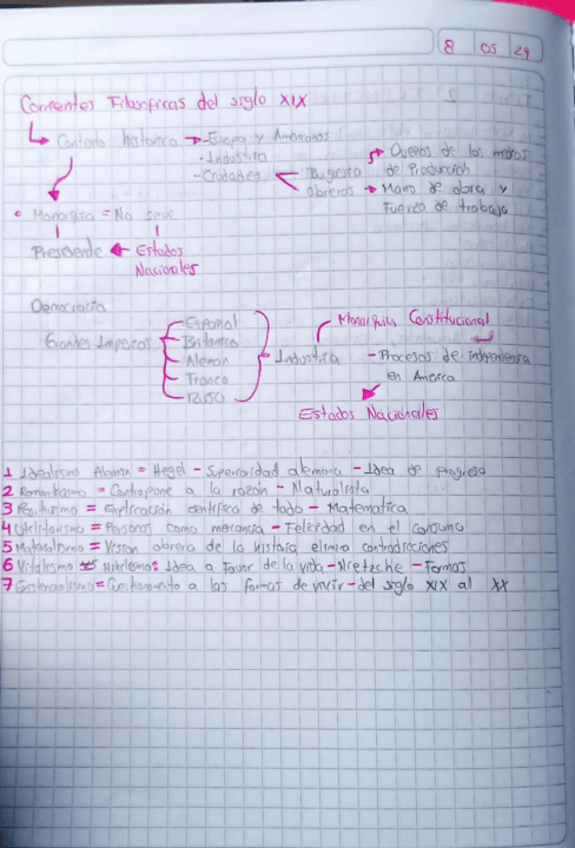 8 05 24
Corrientes Filosoficas del siglo XIX
Contexto historico → - Europa y Americanos
- Industria
- Ciudades < Burgesia → Dueños de los medios de Producción
Obreros → Mano de obra y Fuerza de trabajo
• Monarquia = No sirve
Presidente ← Estados Nacionales
Democracia
Grandes Imperios
- Español
- Britanico
- Aleman
- Franco
- Ruso
• Industria
Monarquia Constitucional
- Procesos de independensia
en America
Estados Nacionales
1 Idealismo Aleman = Hegel - Superioridad alemana - Idea de progreso
2 Romanticismo = Contrapone a la razón - Naturalista
3 Positivismo = Explicación cientifica de todo - Matematica
4 Utilitarismo = Personas como mecancia - Felicidad en el consumo
5 Materialismo = Vision obrera de la historia elimina contradicciones
6 Vitalismo Nihilismo: Idea a favor de la vida - Nietzche - Formas
7 Existencialismo = a las formas de vivir - del siglo XIX al XX